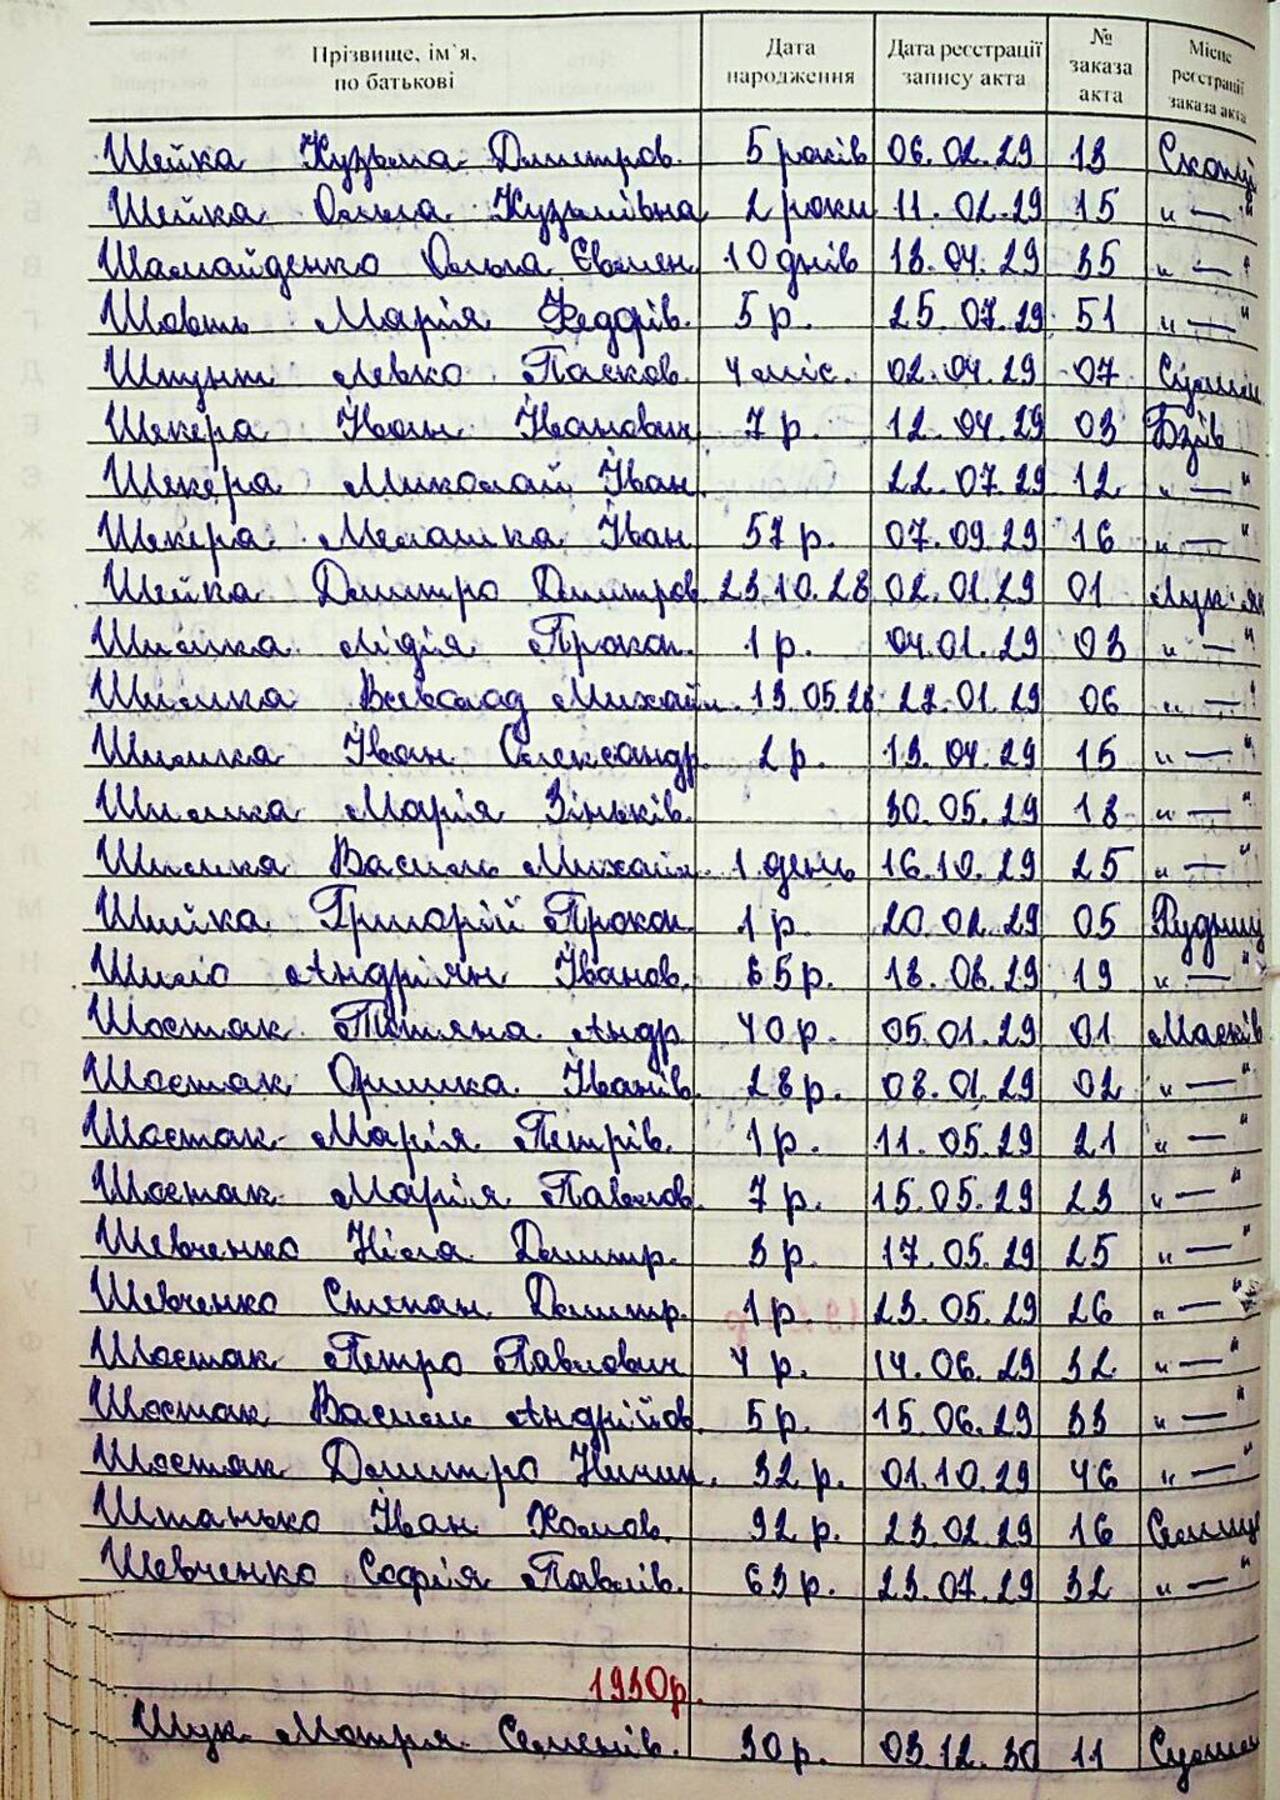 Прізвище, ім`я, по батькові | Дата народження | Дата реєстрації запису акта | № заказа акта | Місце реєстрації заказа акта
Шейка Кузьма Дмитров. 5 років 06.02.29 13
Шейка Ольга Кузьмівна 2 роки 11.02.29 15 "—"
Шамайденко Ольга Євмен 10 днів 13.04.29 35 "—"
Шовть Марія Федорів. 5 р. 25.07.29 51 "—"
Шпунт Левко Пасков. 4 міс. 02.04.29 07
Шекера Іван Іванович 7 р. 12.04.29 03 Бзів
Шекера Миколай Іван. 22.07.29 12 "—"
Шекера Мелашка Іван 57 р. 07.09.29 16 "—"
Шейка Дмитро Дмитров 23.10.28 02.01.29 01 Лук'ян
Шишка Лідія Прокоп. 1 р. 04.01.29 03 "—"
Шишка Всеволод Михайл. 13.05.28 27.01.29 06 "—"
Шишка Іван Олександр. 2 р. 13.04.29 15 "—"
Шишка Марія Зіньків. 30.05.29 18 "—"
Шишка Василь Михайл. 1 день 16.10.29 25 "—"
Шийка Григорій Прокоп. 1 р. 20.02.29 05 Рудниц
Шило Андріян Іванов. 65 р. 18.08.29 19 "—"
Шостак Тетяна Андр 40 р. 05.01.29 01 Масків
Шостак Оришка Іванів. 28 р. 08.01.29 02 "—"
Шостак Марія Петрів. 1 р. 11.05.29 21 "—"
Шостак Марія Павлов. 7 р. 15.05.29 23 "—"
Шевченко Ніла Дмитр. 3 р. 17.05.29 25 "—"
Шевченко Степан Дмитр. 1 р. 23.05.29 26 "—"
Шостак Петро Павлович 4 р. 14.06.29 32 "—"
Шостак Василь Андрійов. 5 р. 15.06.29 33 "—"
Шостак Дмитро Ничип. 32 р. 01.10.29 46 "—"
Штанько Іван Хомов. 92 р. 23.02.29 16 Селищ
Шевченко Софія Павлів. 63 р. 23.07.29 32 "—"
1930 р.
Щук Мотря Семенів. 30 р. 03.12.30 11